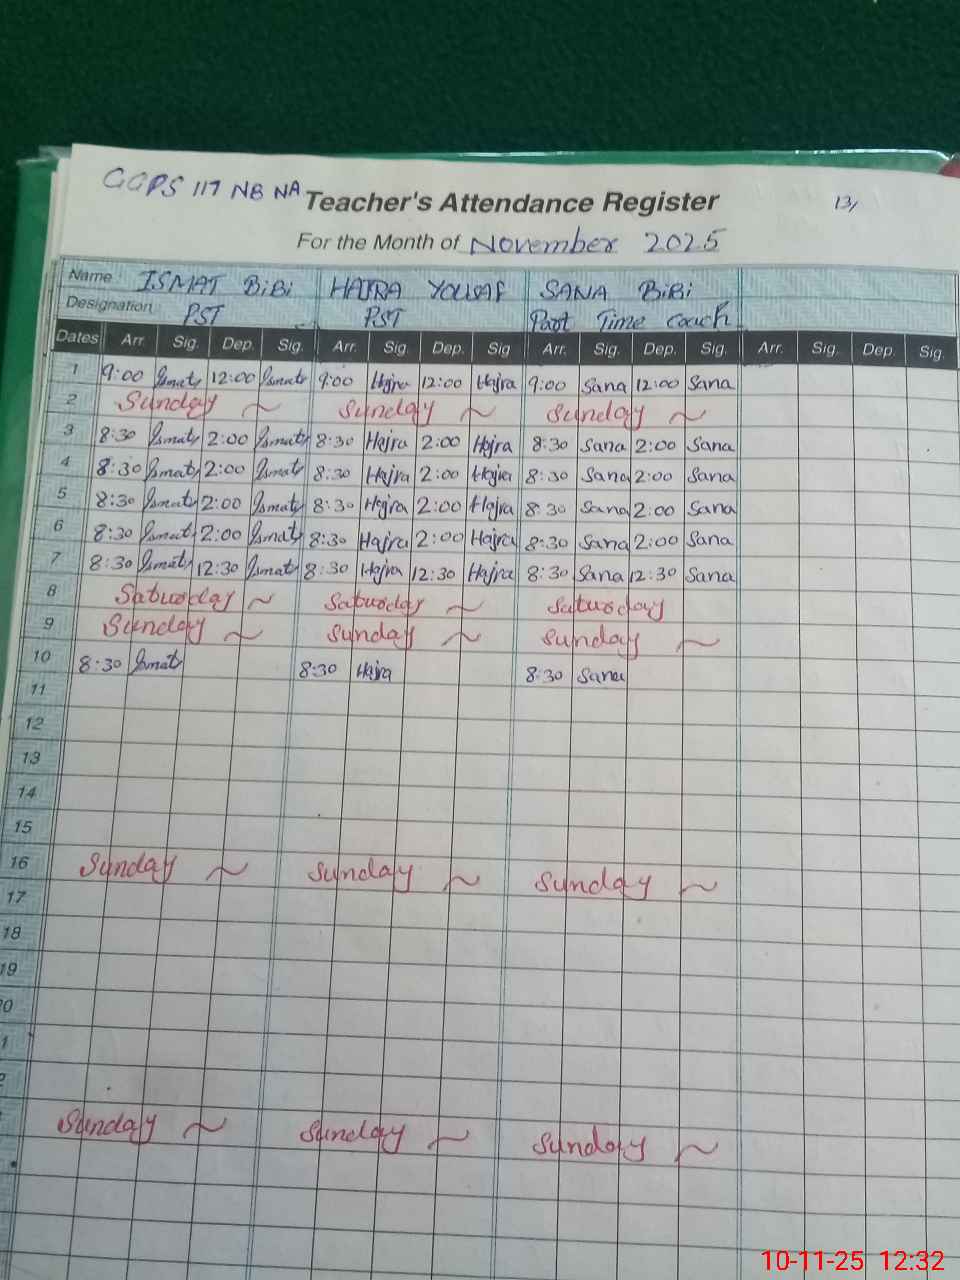 GGPS 117 NB NA Teacher's Attendance Register 13/
For the Month of November 2025
Name ISMAT BiBi HAJRA YOUSAF SANA BiBi
Designation PST PST Part Time Coach
Dates Arr. Sig. Dep. Sig. Arr. Sig. Dep. Sig Arr. Sig. Dep. Sig. Arr. Sig. Dep. Sig.
1 9:00 Ismat 12:00 Ismat 9:00 Hajra 12:00 Hajra 9:00 Sana 12:00 Sana
2 Sunday ~ Sunday ~ Sunday ~
3 8:30 Ismat 2:00 Ismat 8:30 Hajra 2:00 Hajra 8:30 Sana 2:00 Sana
4 8:30 Ismat 2:00 Ismat 8:30 Hajra 2:00 Hajra 8:30 Sana 2:00 Sana
5 8:30 Ismat 2:00 Ismat 8:30 Hajra 2:00 Hajra 8:30 Sana 2:00 Sana
6 8:30 Ismat 2:00 Ismat 8:30 Hajra 2:00 Hajra 8:30 Sana 2:00 Sana
7 8:30 Ismat 12:30 Ismat 8:30 Hajra 12:30 Hajra 8:30 Sana 12:30 Sana
8 Saturday ~ Saturday ~ Saturday
9 Sunday ~ Sunday ~ Sunday ~
10 8:30 Ismat 8:30 Hajra 8:30 Sana
11
12
13
14
15
16 Sunday ~ Sunday ~ Sunday ~
17
18
19
0
1
Sunday ~ Sunday ~ Sunday ~
10-11-25 12:32